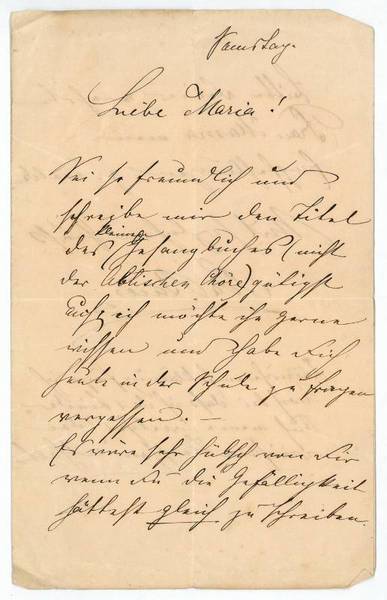 Samstag.
Liebe Maria!
Sei so freundlich und
schreibe mir den Titel
des kleinen Gesangbuches (nicht
der Abtischen Chöre) gütigst
auf, ich möchte ihn gerne
wissen und habe Dich
heute in der Schule zu fragen
vergessen. –
Es wäre sehr hübsch von Dir
wenn Du die Gefälligkeit
hättest gleich zu schreiben.